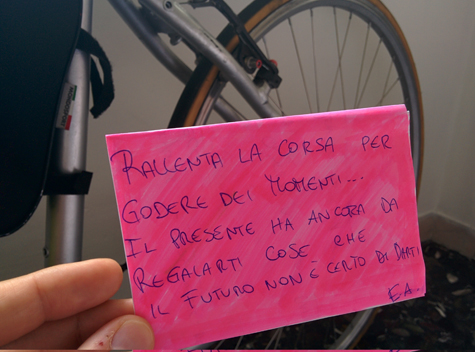 RALLENTA LA CORSA PER
GODERE DEI MOMENTI...
IL PRESENTE HA ANCORA DA
REGALARTI COSE CHE
IL FUTURO NON È CERTO DI DARTI
EA..